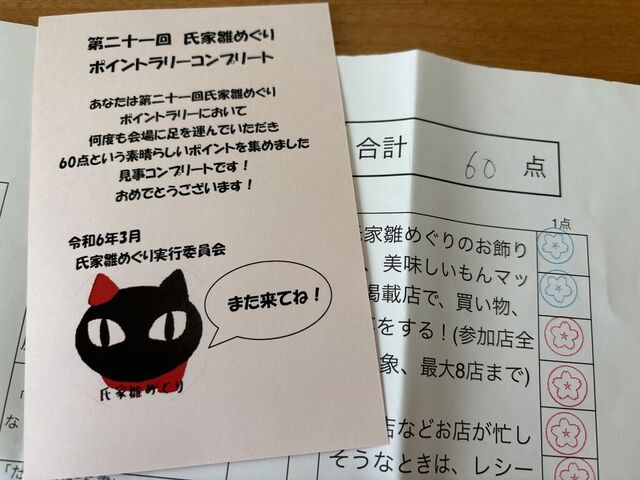 第二十一回 氏家雛めぐり
ポイントラリーコンプリート
あなたは第二十一回氏家雛めぐり
ポイントラリーにおいて
何度も会場に足を運んでいただき
60点という素晴らしいポイントを集めました
見事コンプリートです!
おめでとうございます!
令和6年3月
氏家雛めぐり実行委員会
また来てね!
氏家雛めぐり
合計 60 点
1点
家雛めぐりのお飾り
、美味しいもんマッ
掲載店で、買い物、
をする!(参加店全
象、最大8店まで)
店などお店が忙し
そうなときは、レシー